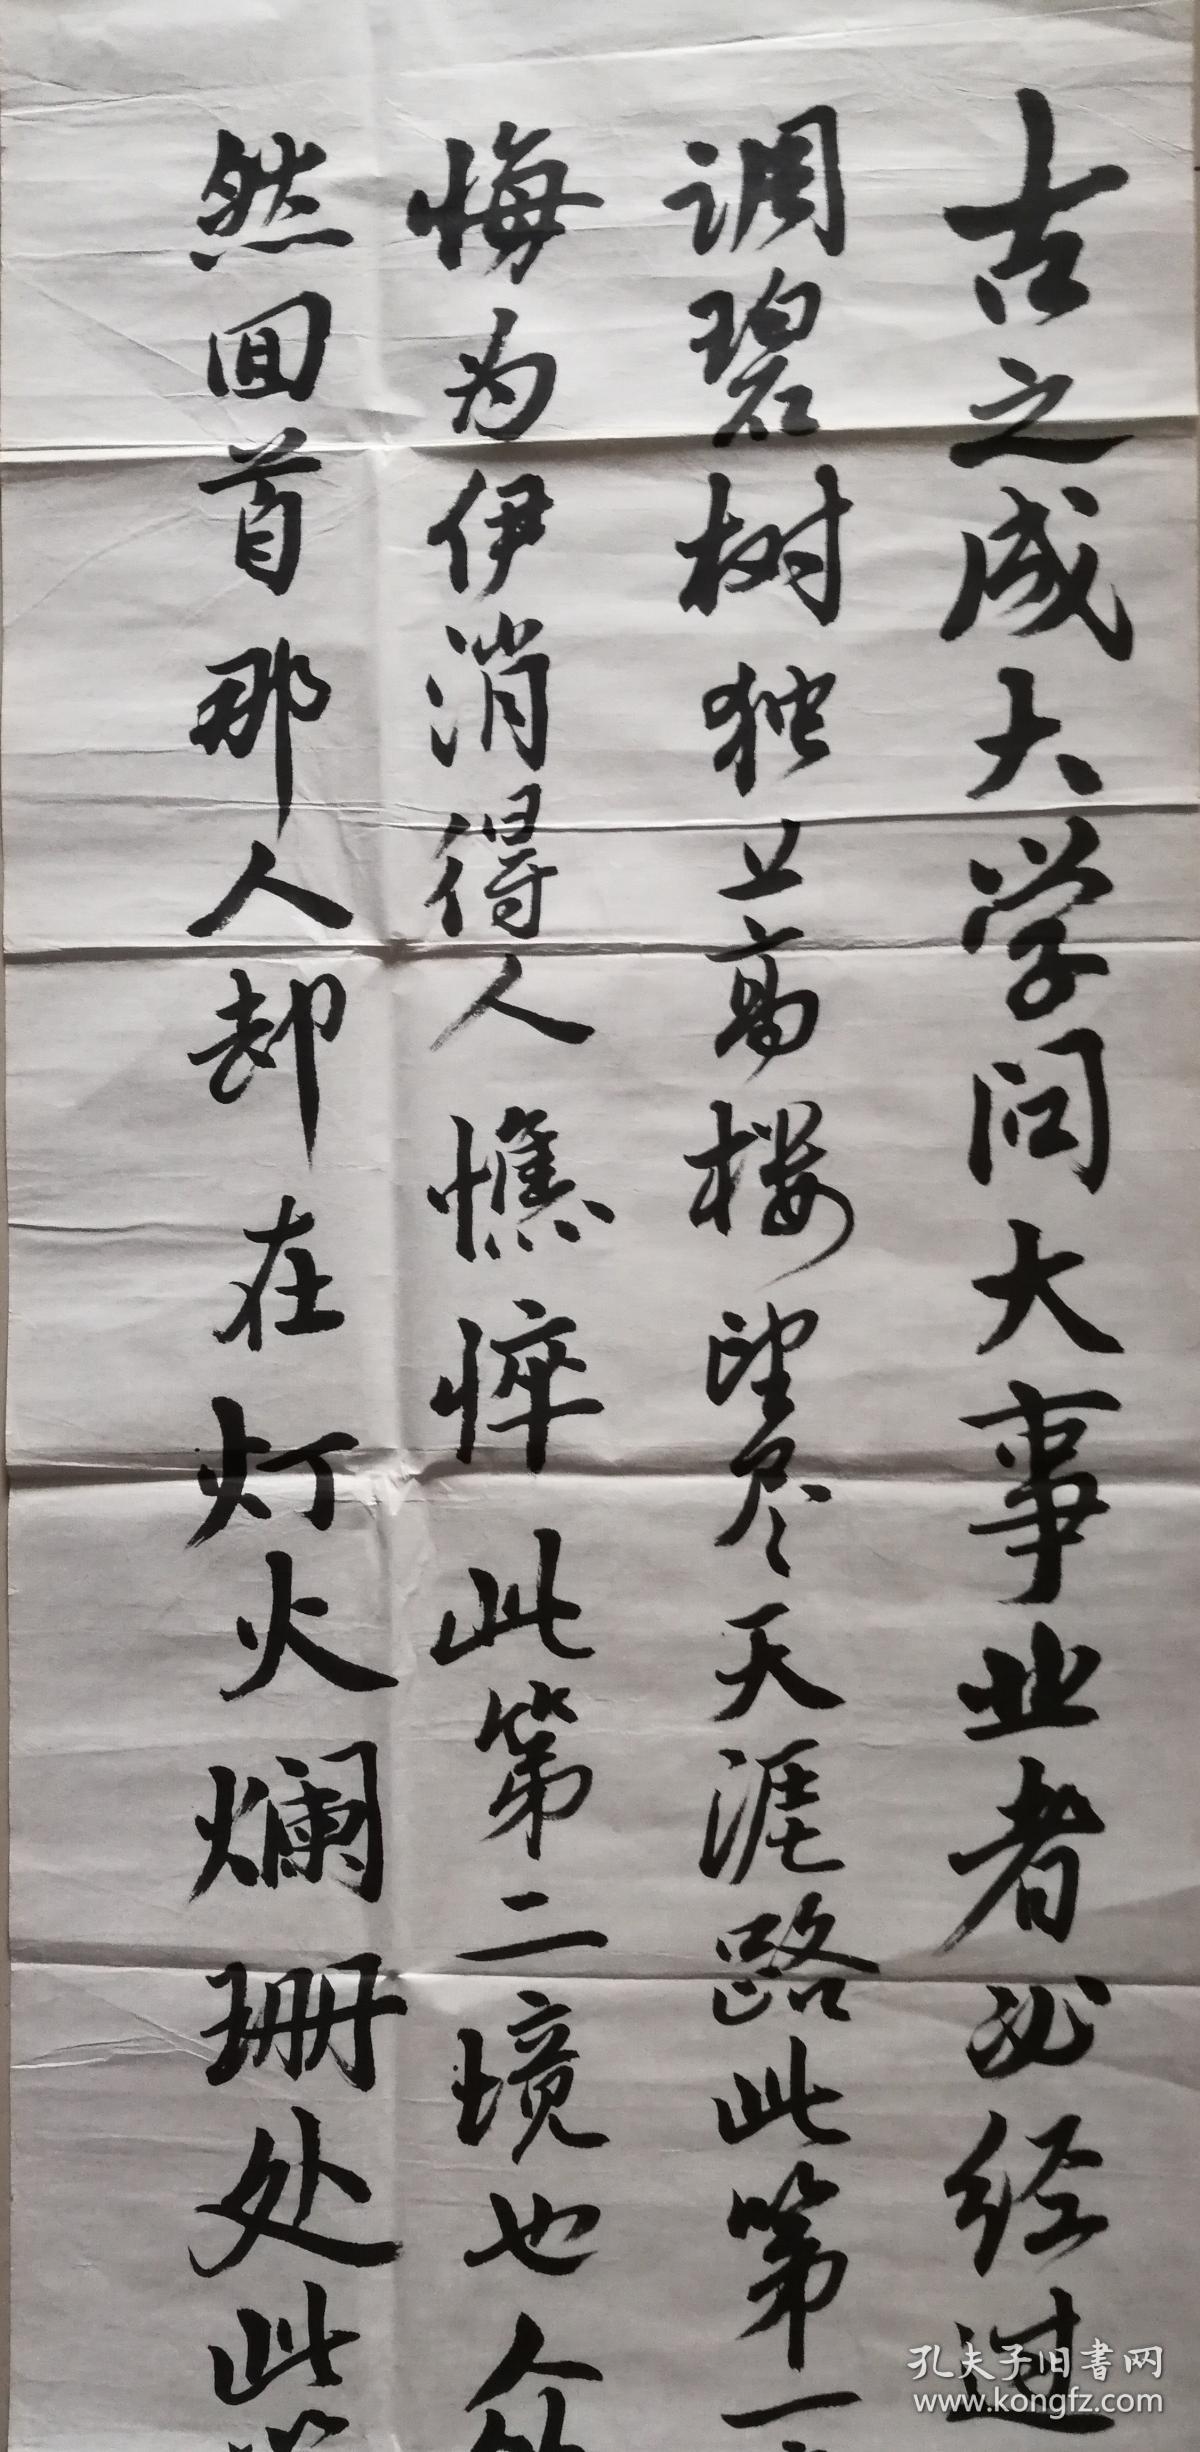 古之成大学问大事业者必经过
调碧树独上高楼望尽天涯路此第一
悔为伊消得人憔悴此第二境也人
然回首那人却在灯火斓珊处此
孔夫子旧書网
www.kongfz.com